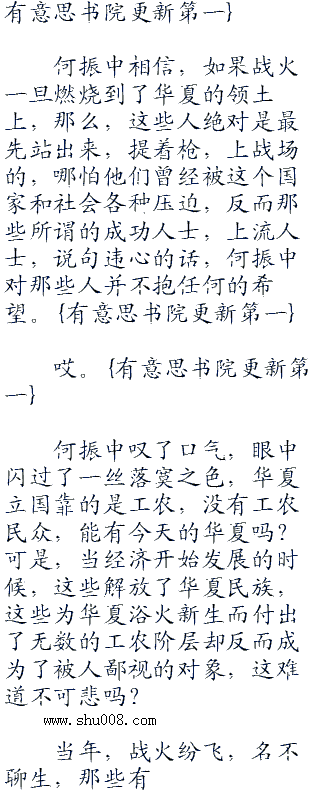 有意思书院更新第一}
何振中相信，如果战火
一旦燃烧到了华夏的领土
上，那么，这些人绝对是最
先站出来，提着枪，上战场
的，哪怕他们曾经被这个国
家和社会各种压迫，反而那
些所谓的成功人士，上流人
士，说句违心的话，何振中
对那些人并不抱任何的希
望。{有意思书院更新第一}
哎。{有意思书院更新第
一}
何振中叹了口气，眼中
闪过了一丝落寞之色，华夏
立国靠的是工农，没有工农
民众，能有今天的华夏吗？
可是，当经济开始发展的时
候，这些解放了华夏民族，
这些为华夏浴火新生而付出
了无数的工农阶层却反而成
为了被人鄙视的对象，这难
道不可悲吗？
www.shu008.com
当年，战火纷飞，名不
聊生，那些有